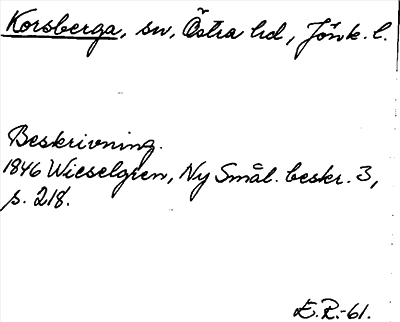 Korsberga, sn, Östra hd, Jönk. l.
Beskrivning.
1846 Wieselgren, Ny Smål. beskr. 3,
s. 218.
E.R.-61.